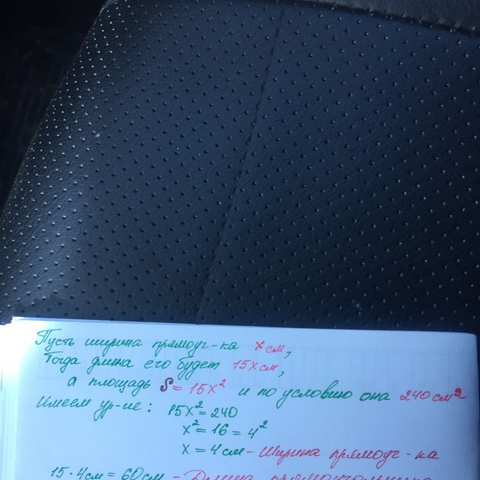 Пусть ширина прямоуг-ка х см,
Тогда длина его будет 15х см,
а площадь S = 15х² и по условию она 240 см²
Имеем ур-ие: 15х² = 240
х² = 16 = 4²
х = 4 см - Ширина прямоуг-ка
15 · 4 см = 60 см - Длина прямоугольника